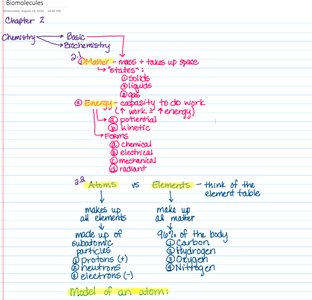 Biomolecules
Chapter 2
Chemistry Basic
Biochemistry
2.1 Matter - mass + takes up space
"states":
① solids
② liquids
③ gas
Energy - capasity to do work
(↑ work = ↑ energy)
① potential
② kinetic
FORMS
① chemical
② electrical
③ mechanical
④ radiant
2.2 Atoms vs Elements - think of the
element table
makes up make up
all elements all matter
made up of 96% of the body
subatomic ① Carbon
particles ② Hydrogen
① protons (+) ③ Oxygen
② neutrons ④ Nitrogen
③ electrons (-)
Model of an atom: